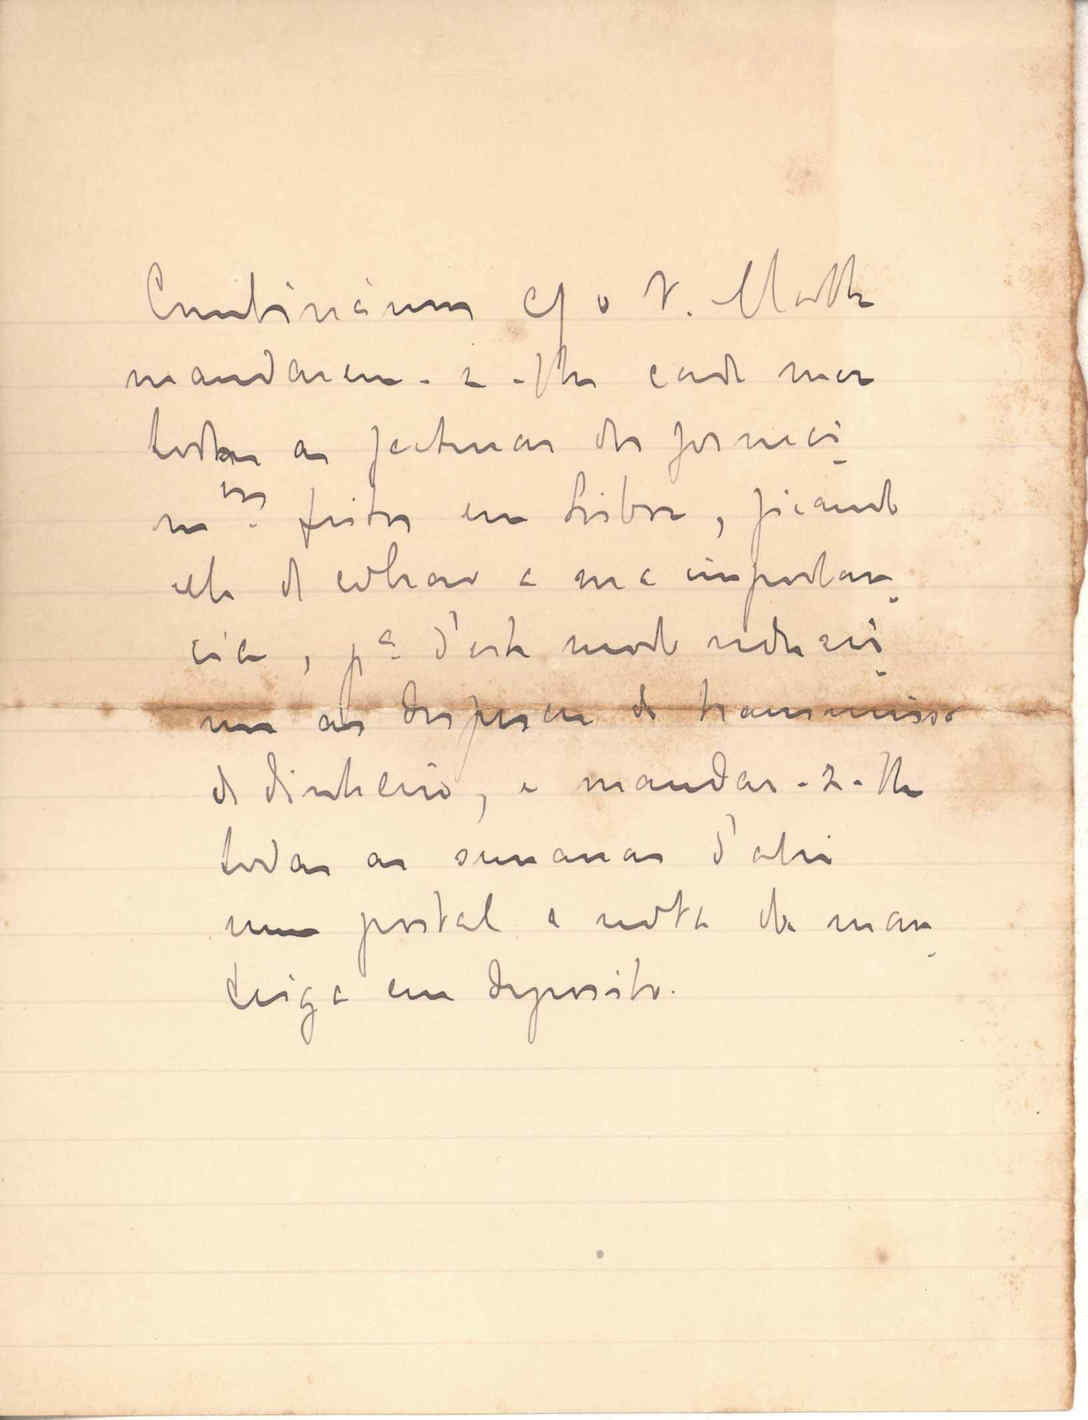 Combinámos c/ o V. Motta
mandarem-se-lhe cada mez
todas as facturas dos forneci-
m.tos feitos em Lisboa, ficando
elle de cobrar a sua importan-
cia, p.a d'este modo reduzir-
mos as despezas de transmissão
de dinheiro, e mandar-se-lhe
todas as semanas d'ahi
num postal a nota da man-
teiga em deposito.